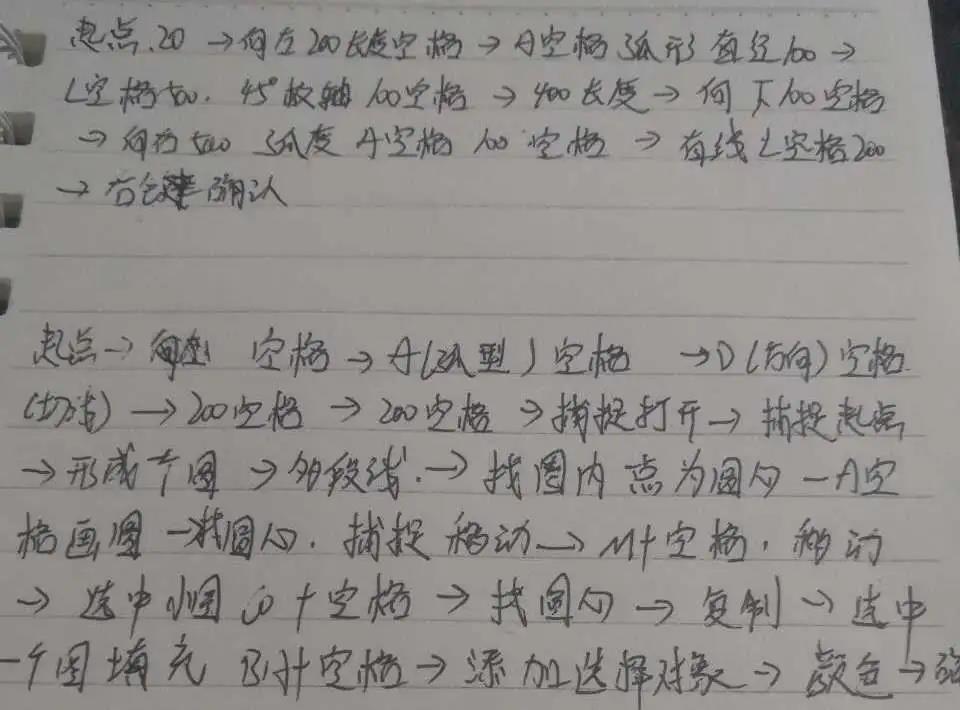 起点.20 →向左200长度空格→A空格 弧形 直径100→
L空格500. 45°极轴 100空格 → 400长度→向下100空格
→向右500 弧度 A空格 100 空格 → 直线L空格200
→右键确认
起点→ 空格 →A(弧型)空格 →D(方向)空格
(切线)→200空格→200空格→捕捉打开→捕捉起点
→形成个圆→多段线.→找圆内点为圆心—A空
格画圆→找圆心.捕捉移动→M+空格.移动
→选中小圆 co+空格→找圆心→复制→选中
一个圆填充 H+空格→添加选择对象→颜色→